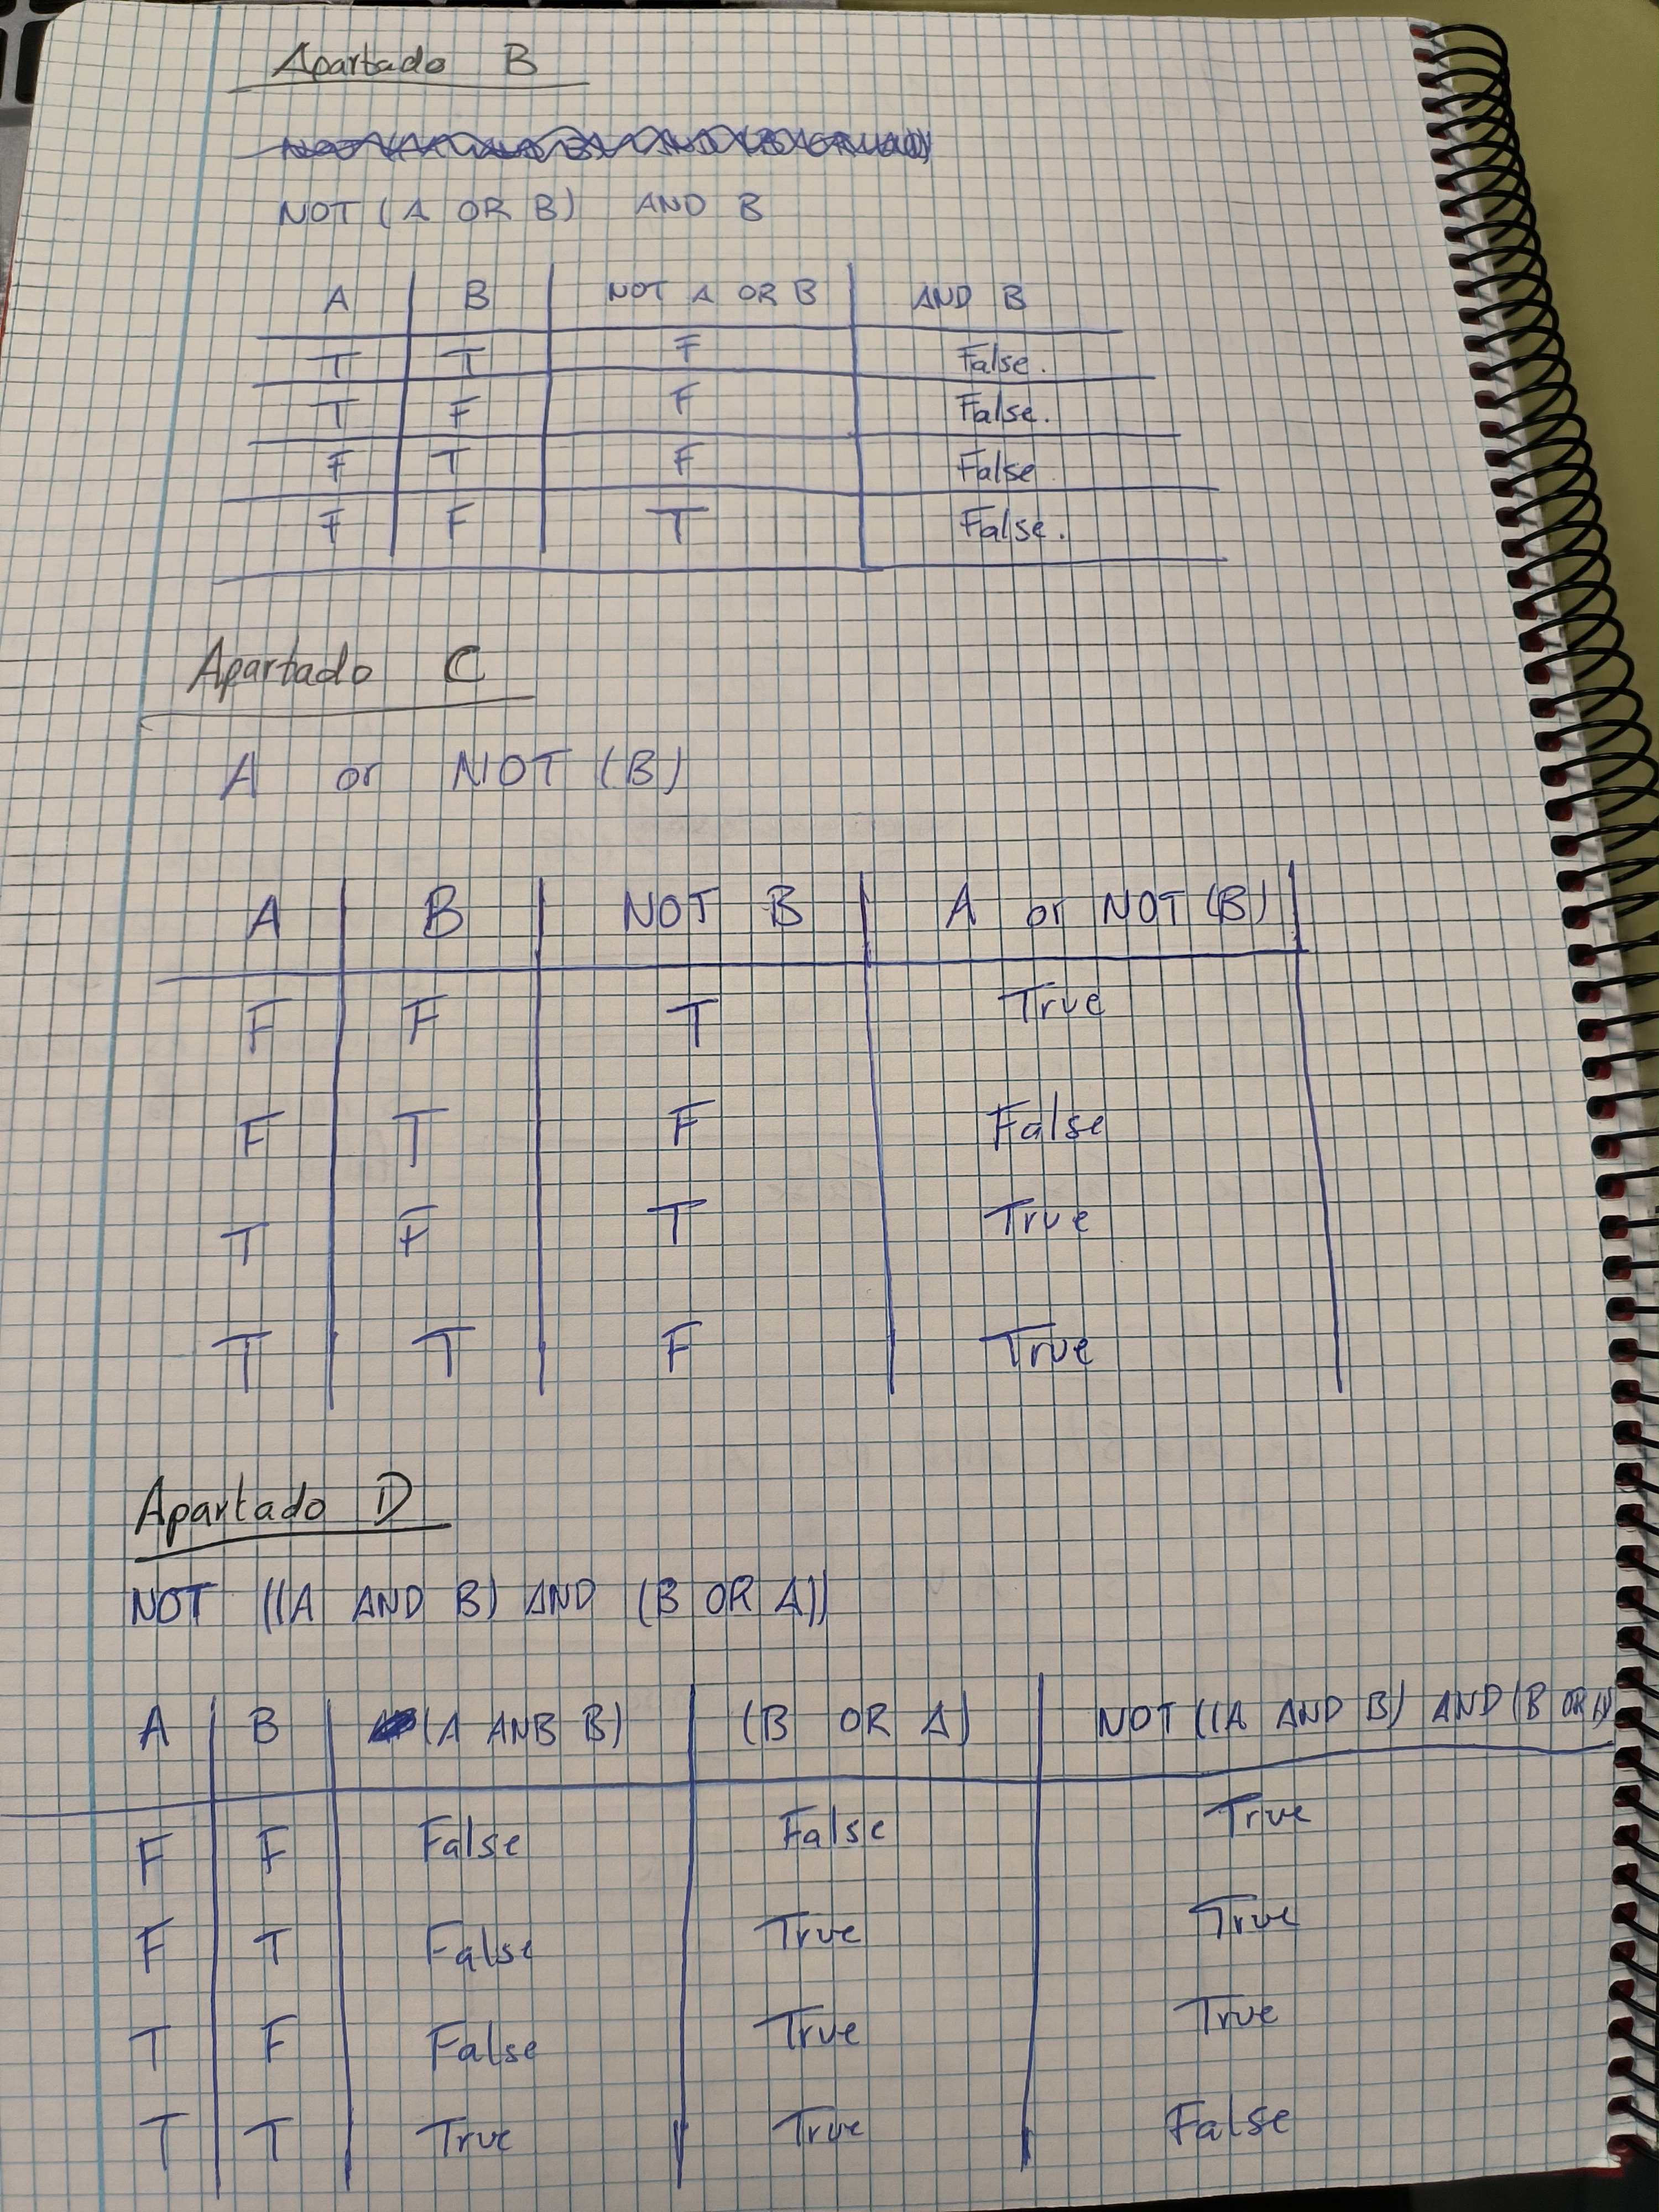 Apartado B
NOT (A OR B) AND B
A B NOT A OR B AND B
T T F False.
T F F False.
F T F False.
F F T False.
Apartado C
A or NOT (B)
A B NOT B A or NOT (B)
F F T True
F T F False
T F T True
T T F True
Apartado D
NOT ((A AND B) AND (B OR A))
A B (A ANB B) (B OR A) NOT ((A AND B) AND (B OR A))
F F False False True
F T False True True
T F False True True
T T True True False